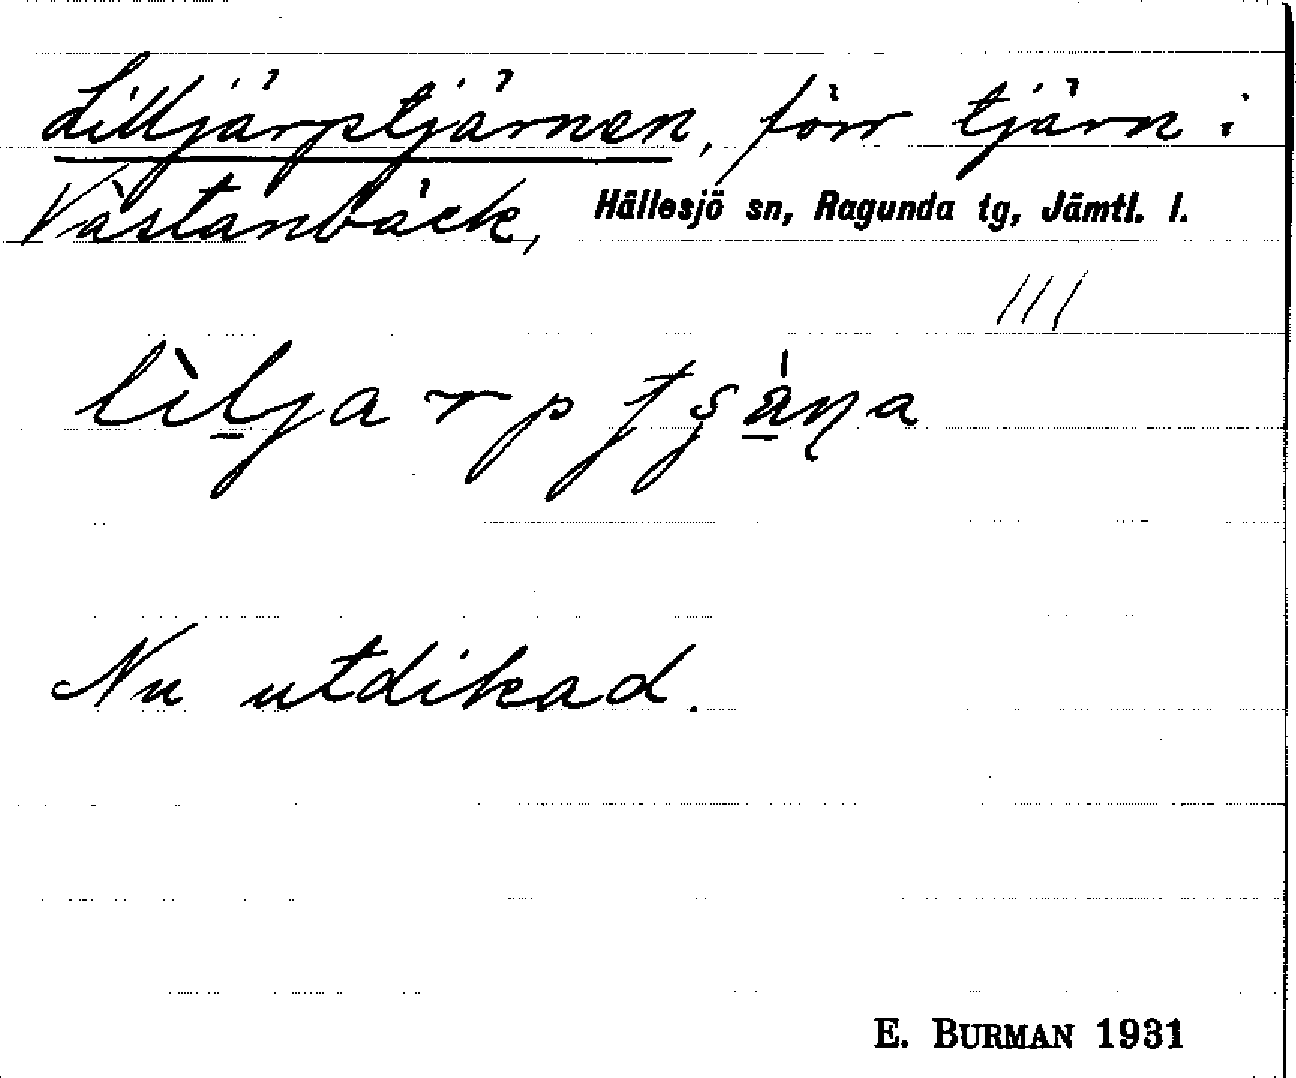 Lilljärptjärnen, förr tjärn i
Västanbäck, Hällesjö sn, Ragunda tg, Jämtl. l.
///
Nu utdikad.
E. BURMAN 1931